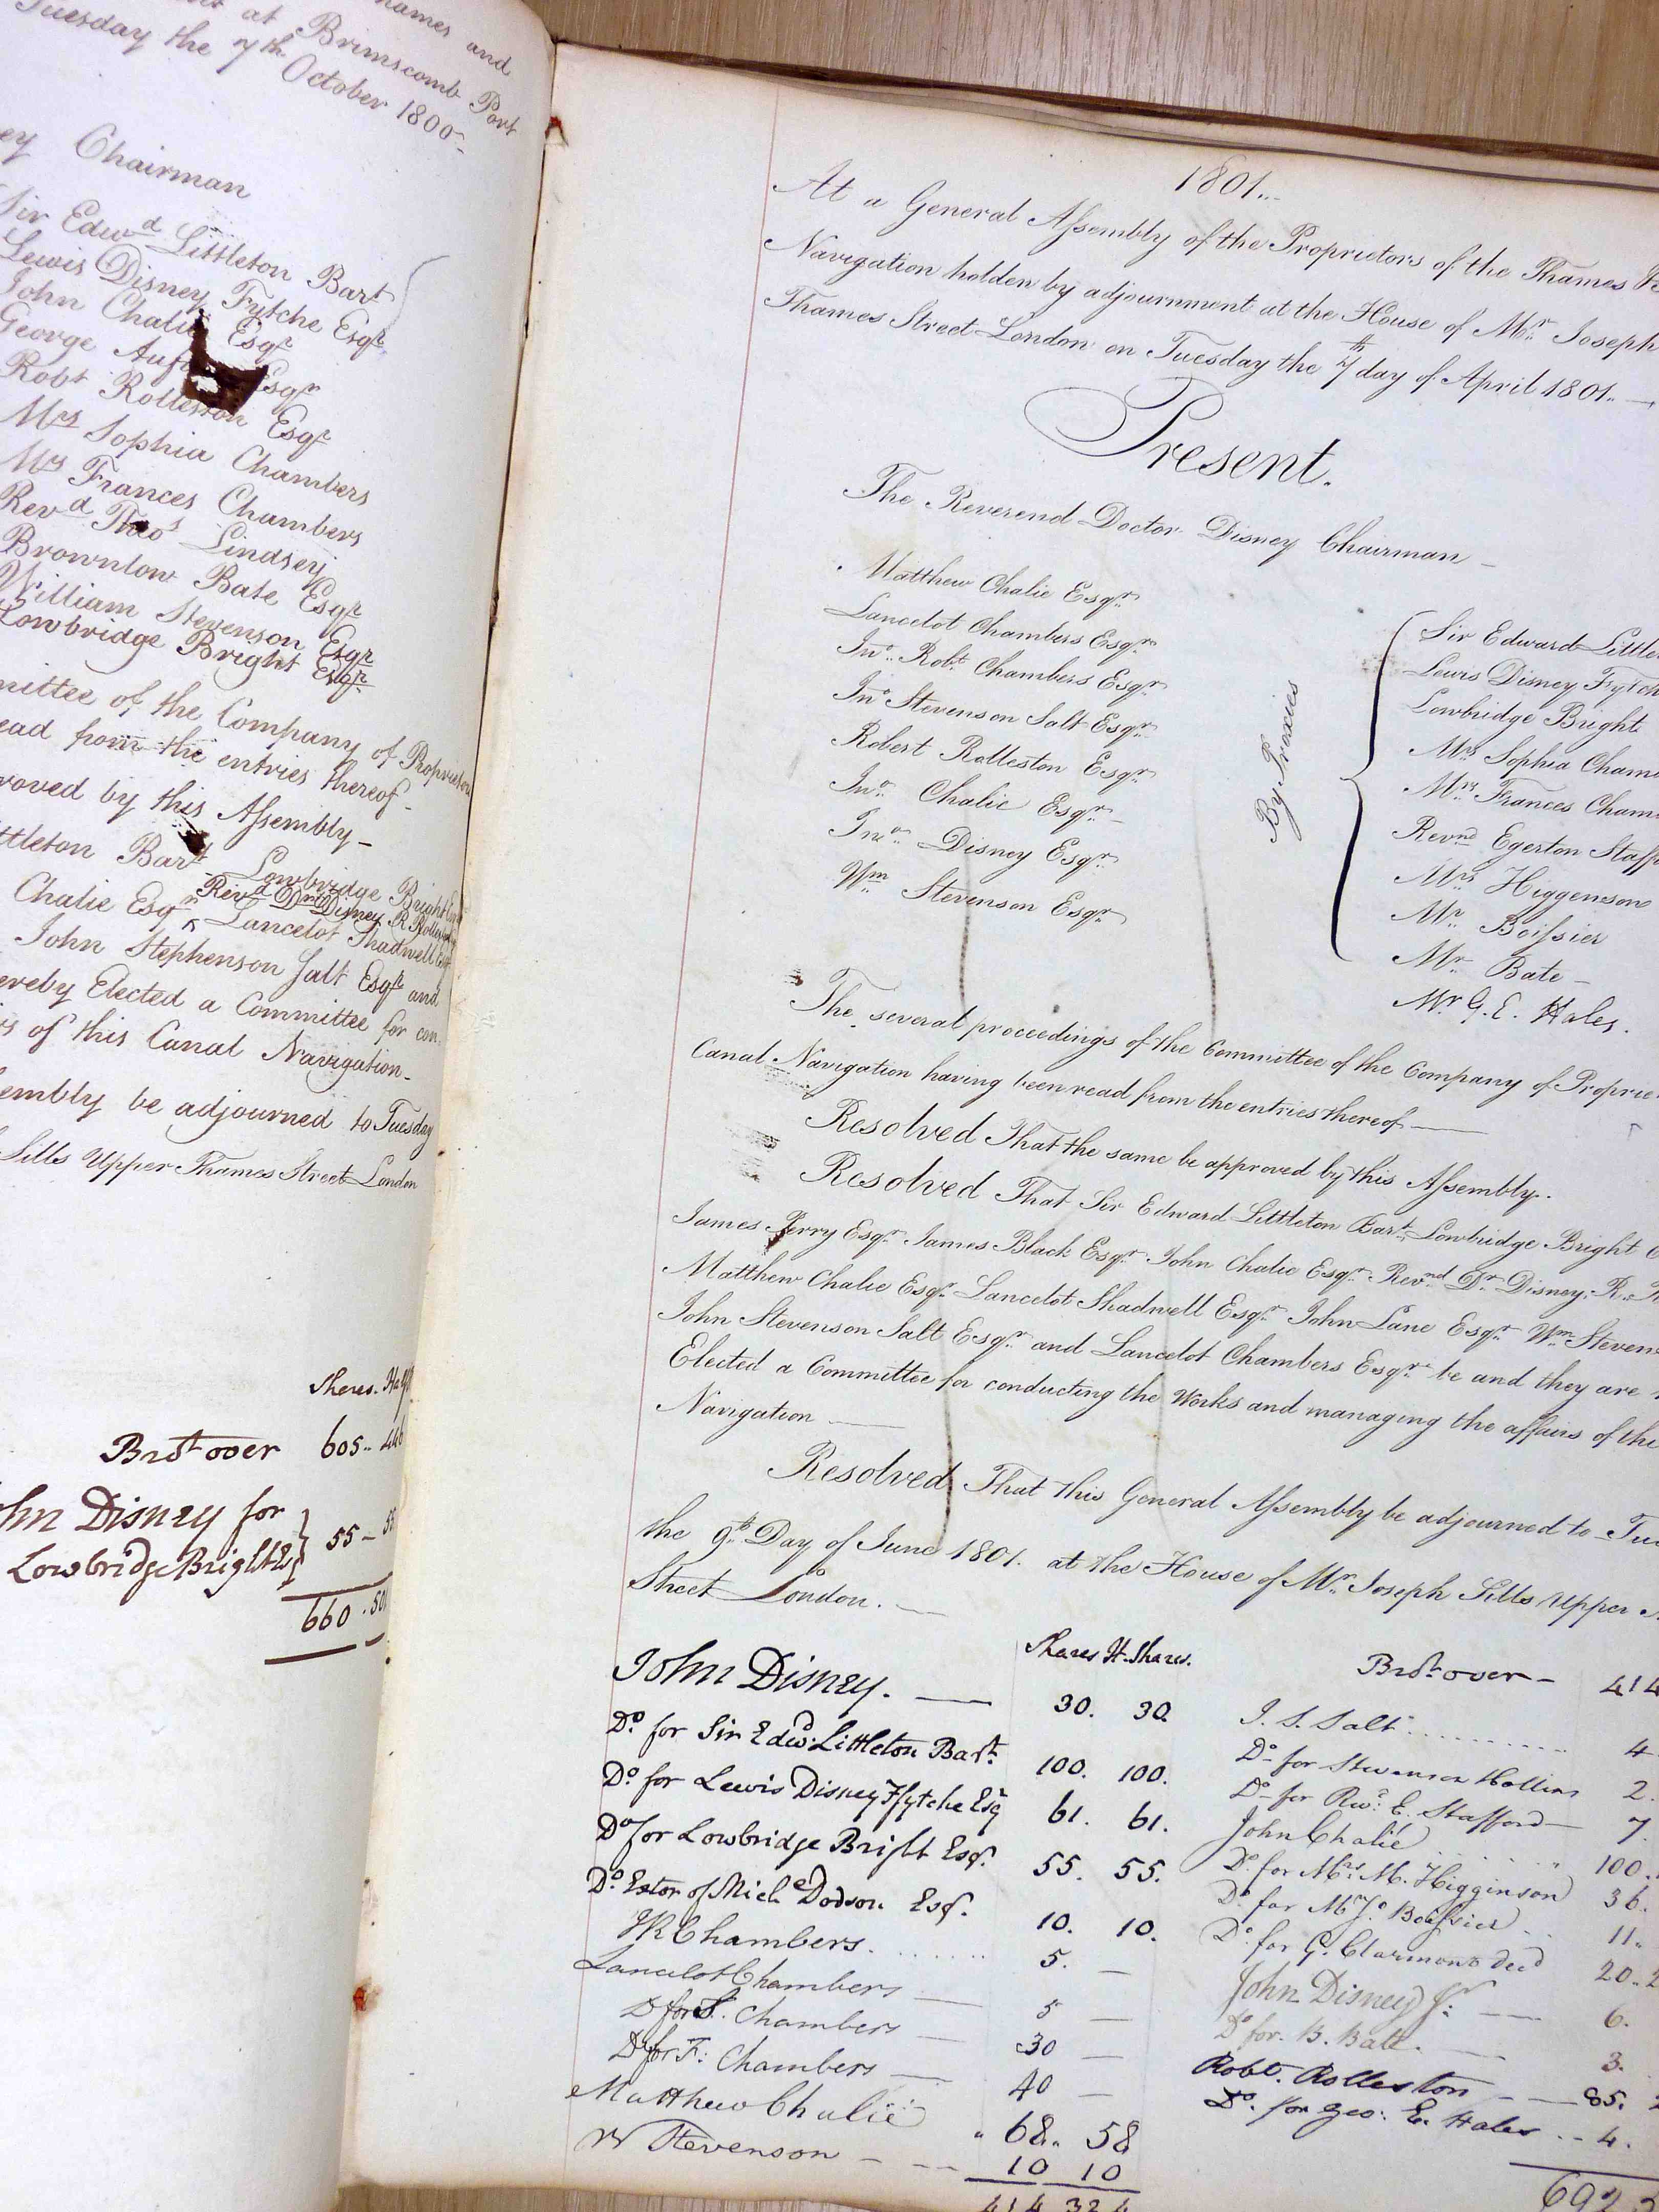 names and
at Brimscomb Port
Tuesday the 7th October 1800
Chairman
Sir Edwd Littleton Bart
Lewis Disney Fytche Esqr
John Chalie Esqr
George Esqr
Robt Rolleston Esqr
Mrs Sophia Chambers
Mrs Frances Chambers
Revd Theos Lindsey
Brownlow Bate Esqr
William Stevenson Esqr
Lowbridge Bright Esqr
mittee of the Company of Proprietors
ead from the entries thereof
roved by this Assembly
ttleton Bart Lowbridge Bright
Revd Dr Disney R Rolleston
Chalie Esqr Lancelot Shadwell Esqr
John Stephenson Salt Esqr and
ereby Elected a Committee for con
rs of this Canal Navigation
embly be adjourned to Tuesday
Sills Upper Thames Street London
Shares. Half
Brot over 605.. 446
ohn Disney for
Lowbridge Bright Esq } 55 - 55
660 . 501
1801...
At a General Assembly of the Proprietors of the Thames
Navigation holden by adjournment at the House of Mr Joseph
Thames Street London on Tuesday the 7th day of April 1801..
Present.
The Reverend Doctor Disney Chairman
Matthew Chalie Esqr
Lancelot Chambers Esqr
Jno. Robt Chambers Esqr
Jno Stevenson Salt Esqr
Robert Rolleston Esqr
Jno. Chalie Esqr
Jno. Disney Esqr
Wm Stevenson Esqr
By Proxies
Sir Edward Little
Lewis Disney Fytch
Lowbridge Bright
Mrs Sophia Cham
Mrs Frances Cham
Revnd Egerton Staff
Mrs Higgenson
Mr Boissier
Mr Bate
Mr G. E. Hales.
The several proceedings of the Committee of the Company of Proprie
Canal Navigation having been read from the entries thereof
Resolved That the same be approved by this Assembly.
Resolved That Sir Edward Littleton Bart Lowbridge Bright
James Perry Esqr James Black Esqr John Chalie Esqr Revnd Dr Disney, R.
Matthew Chalie Esqr Lancelot Shadwell Esqr John Lane Esqr Wm Steven
John Stevenson Salt Esqr and Lancelot Chambers Esqr be and they are
Elected a Committee for conducting the Works and managing the affairs of the
Navigation
Resolved That this General Assembly be adjourned to Tue
the 9th Day of June 1801. at the House of Mr Joseph Sills Upper
Street London.
Shares H. Shares.
John Disney. 30. 30.
Do. for Sir Edwd. Littleton Bart. 100. 100.
Do. for Lewis Disney Ffytche Esq 61. 61.
Do for Lowbridge Bright Esq. 55. 55.
Do. Extor of Michl Dodson Esq. 10. 10.
JR Chambers. 5. —
Lancelot Chambers 5 —
Do for S. Chambers 30 —
Do for F. Chambers 40 —
Matthew Chalie 68.. 58
W Stevenson 10 10
414 324
Brot over - 414
J. S. Salt 4
Do for Stevenson 2.
Do for Revd. E. Stafford 7.
John Chalié 100.
Do. for Mrs. M. Higginson 36.
Do for Mr Jo Boissier 11.
Do. for G. Clarmont decd 20.. 2
John Disney Jr. 6.
Do for B. Bate. 3.
Robt. Rolleston 85.
Do. for Geo: E. Hales .. 4.
692